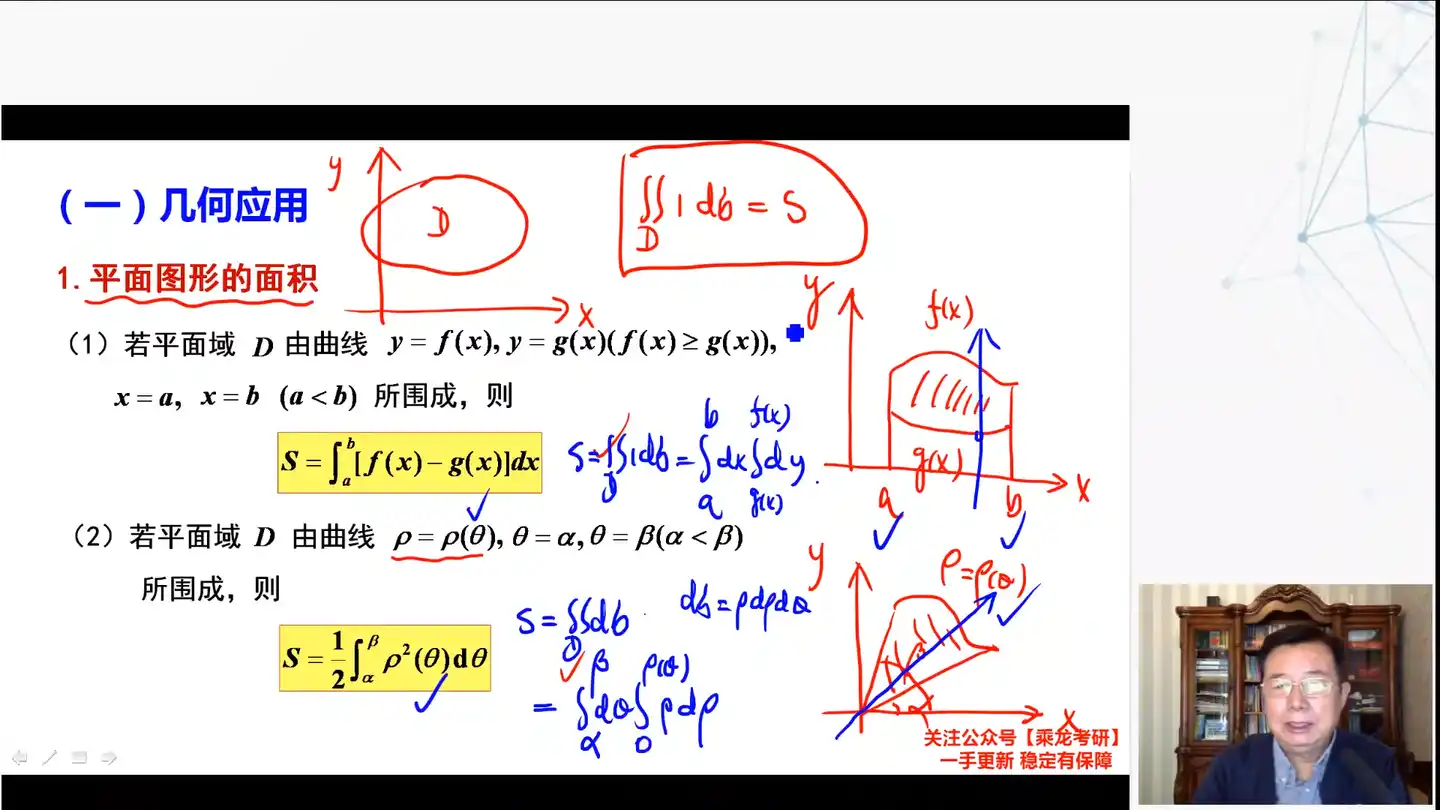 （一）几何应用
y
D
x
∬_D 1 dσ = S
1.平面图形的面积
（1）若平面域 D 由曲线 y = f(x), y = g(x)(f(x) ≥ g(x)),
x = a, x = b (a < b) 所围成，则
S = ∫_a^b [f(x) − g(x)]dx
S = ∬_D 1 dσ = ∫_a^b dx ∫_{g(x)}^{f(x)} dy.
y
f(x)
g(x)
a
b
x
（2）若平面域 D 由曲线 ρ = ρ(θ), θ = α, θ = β(α < β)
所围成，则
S = 1/2 ∫_α^β ρ²(θ)dθ
S = ∬_D dσ
dσ = ρdρdθ
= ∫_α^β dθ ∫_0^{ρ(θ)} ρdρ
y
ρ = ρ(θ)
β
α
x
关注公众号【乘龙考研】
一手更新 稳定有保障